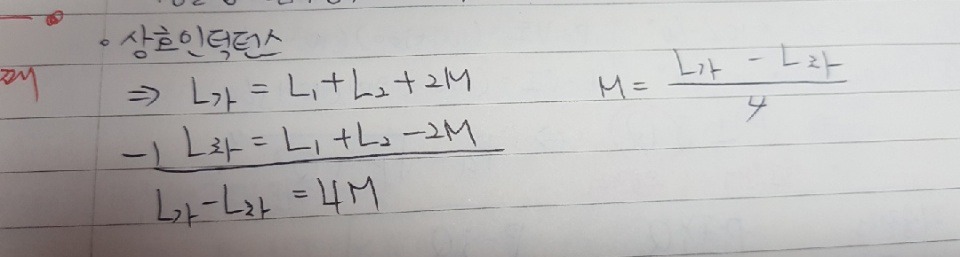 • 상호인덕턴스
⇒ L가 = L₁ + L₂ + 2M
-) L차 = L₁ + L₂ - 2M
L가 - L차 = 4M
M = (L가 - L차) / 4